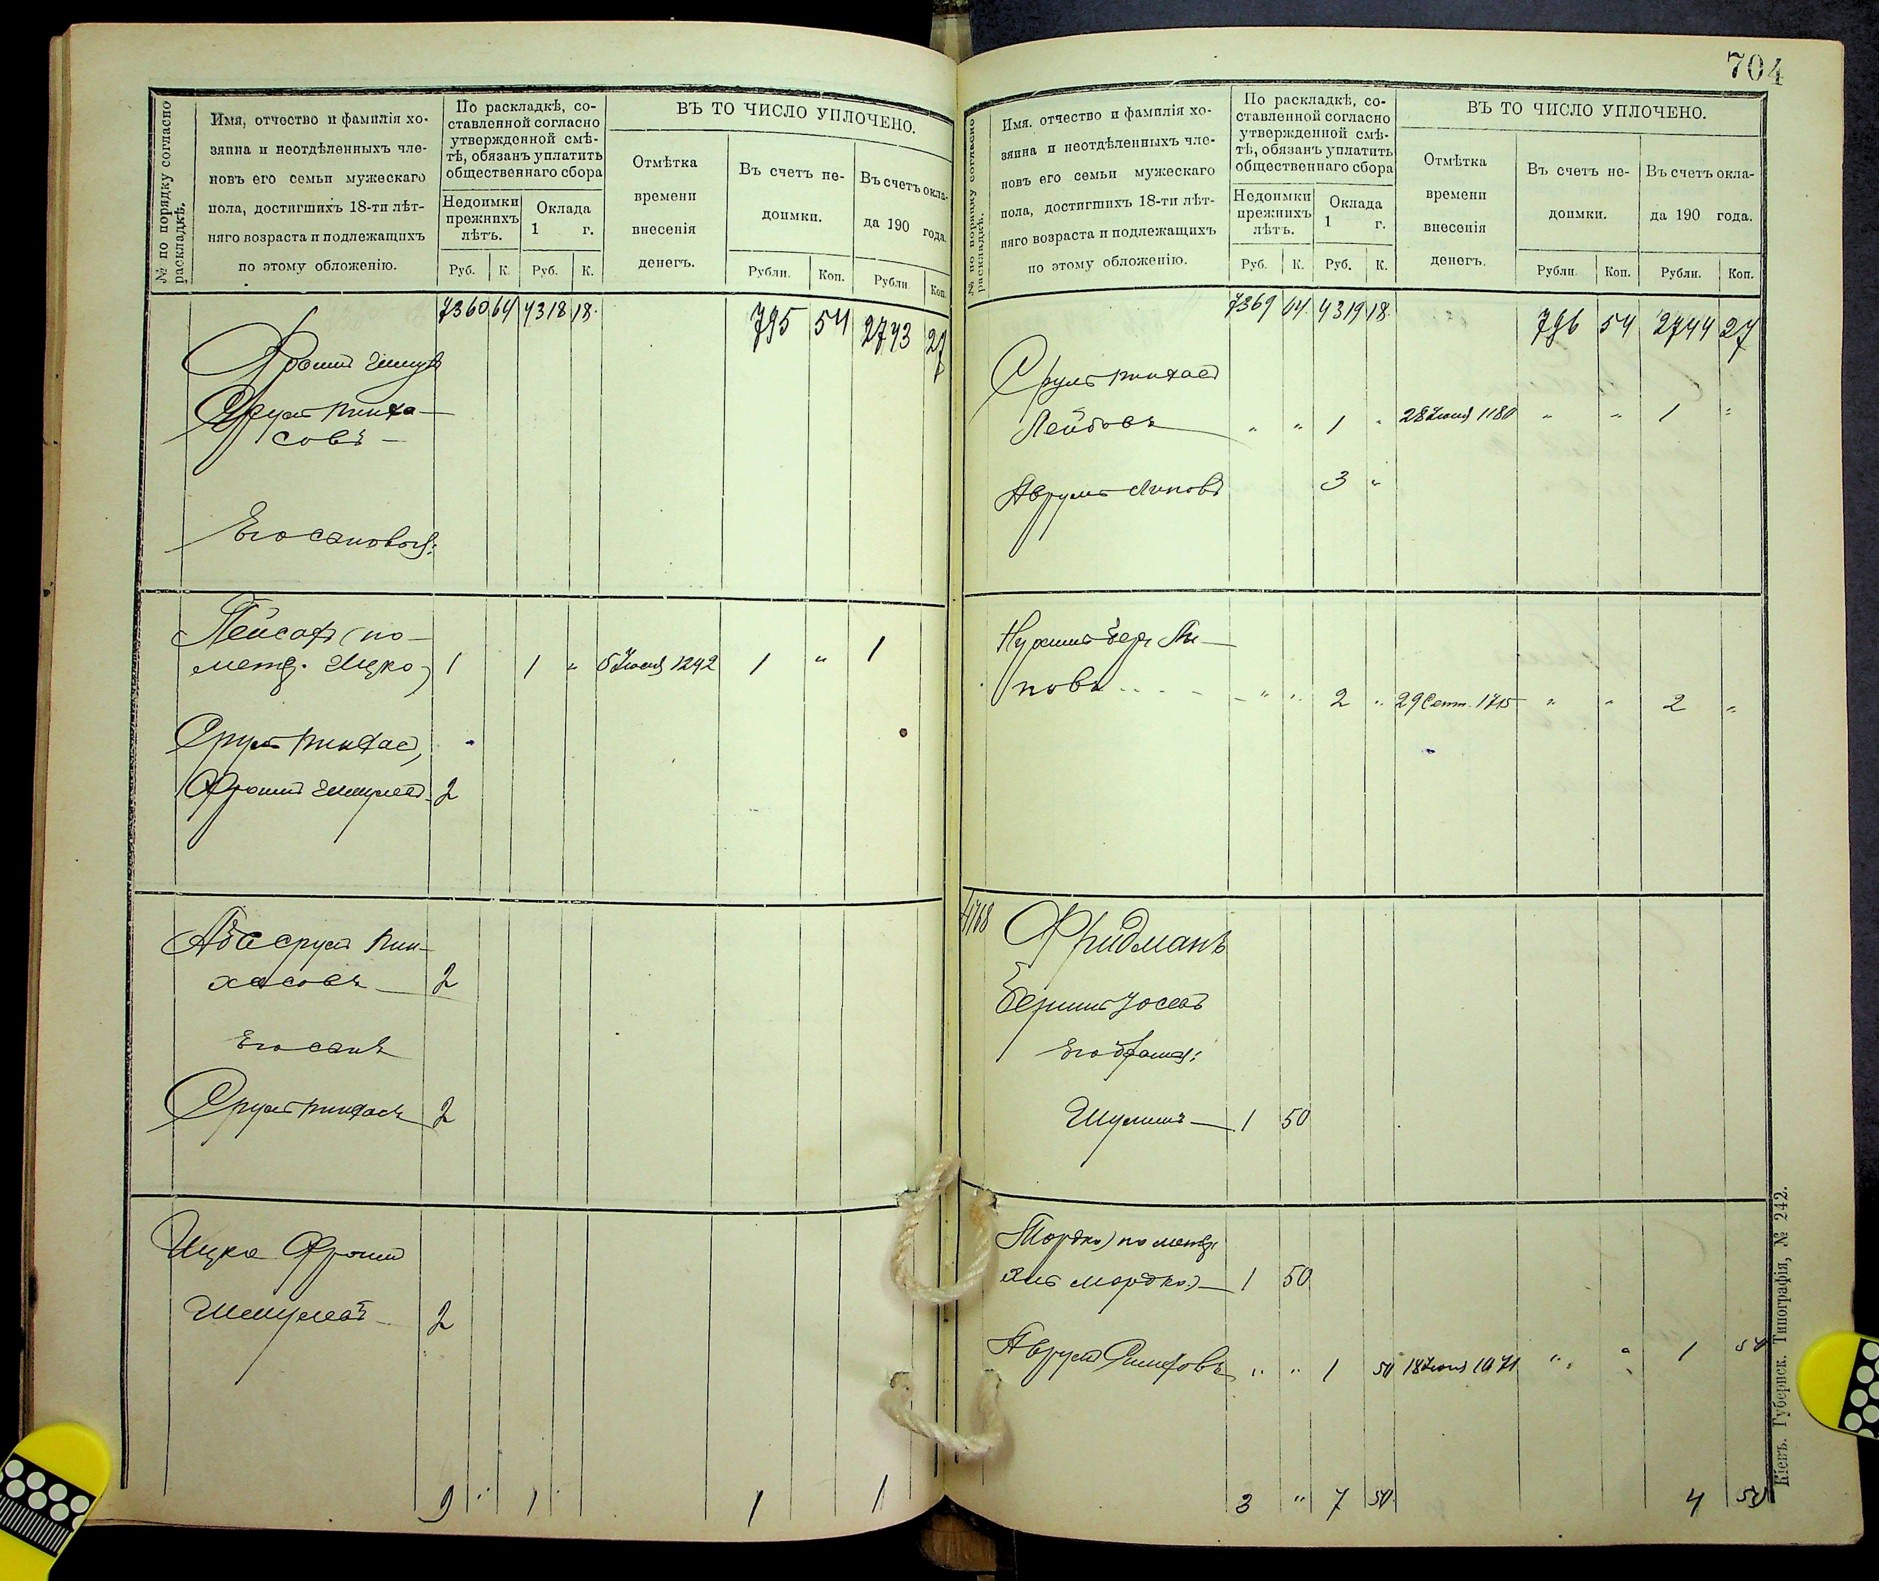 704
№ по порядку согласно раскладкѣ.
Имя, отчество и фамилія хо-
зяина и неотдѣленныхъ чле-
новъ его семьи мужескаго
пола, достигшихъ 18-ти лѣт-
няго возраста и подлежащихъ
по этому обложенію.
По раскладкѣ, со-
ставленной согласно
утвержденной смѣ-
тѣ, обязанъ уплатить
общественнаго сбора
Недоимки
прежнихъ
лѣтъ.
Оклада
1 г.
Руб. К. Руб. К.
ВЪ ТО ЧИСЛО УПЛОЧЕНО.
Отмѣтка
времени
внесенія
денегъ.
Въ счетъ не-
доимки.
Въ счетъ окла-
да 190 года.
Рубли. Коп. Рубли Коп.
7360 64 4318 18. 795 54 2743 27
Сруль Пинха-
совъ
Его сановья:
Пейсахъ (по
метр. Ицко) 1 1 " 5 Іюля 1242 1 " 1
Сруль Пинхас,
Фроимъ Шмулев. 2
Аба Сруль Пин-
хасовъ 2
Его санъ
Сруль Пинхасъ 2
Ицко Фроим
Шмулевъ 2
9 1 1 1
№ по порядку согласно раскладкѣ.
Имя, отчество и фамилія хо-
зяина и неотдѣленныхъ чле-
новъ его семьи мужескаго
пола, достигшихъ 18-ти лѣт-
няго возраста и подлежащихъ
по этому обложенію.
По раскладкѣ, со-
ставленной согласно
утвержденной смѣ-
тѣ, обязанъ уплатить
общественнаго сбора
Недоимки
прежнихъ
лѣтъ.
Оклада
1 г.
Руб. К. Руб. К.
ВЪ ТО ЧИСЛО УПЛОЧЕНО.
Отмѣтка
времени
внесенія
денегъ.
Въ счетъ не-
доимки.
Въ счетъ окла-
да 190 года.
Рубли Коп. Рубли. Коп.
7369 64 4319 18 796 54 2744 27
Сруль Пинхас
Лейбовъ " " 1 " 28 Іюня 1180 " " 1 "
Аврумъ Липовъ 3 "
Нухимъ Бер Ли-
повъ " " 2 " 29 Сент. 1715 " " 2 "
4768 Фридманъ
Беришъ Іосевъ
Его братья:
Шулимъ 1 50
Мордко (по метр.
Янк. Мордко) 1 50
Аврум " " 1 50 18 Іюня 1071 " " 1 50
3 " 7 50 4 50
Кіевъ. Губернск. Типографія, № 242.